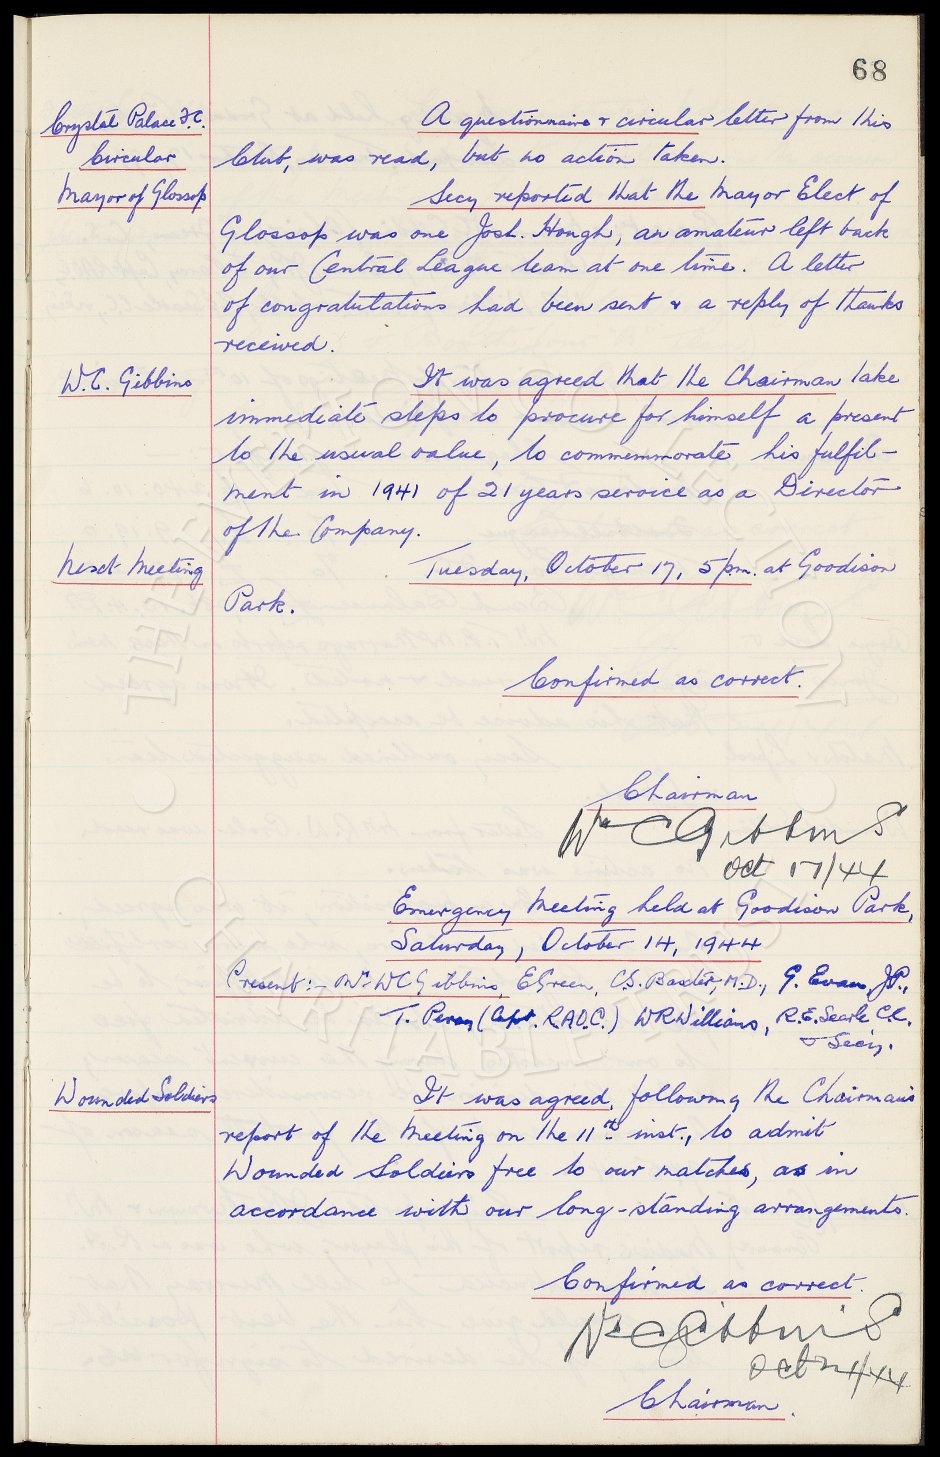 68
Crystal Palace F.C. A questionnaire & circular letter from this
Circular Club, was read, but no action taken.
Mayor of Glossop Secy reported that the Mayor Elect of
Glossop was one Josh. Hough, an amateur left back
of our Central League team at one time. A letter
of congratulations had been sent & a reply of thanks
received.
W.C. Gibbins It was agreed that the Chairman take
immediate steps to procure for himself a present
to the usual value, to commemmorate his fulfil-
ment in 1941 of 21 years service as a Director
of the Company.
Next Meeting Tuesday, October 17, 5 p.m. at Goodison
Park.
Confirmed as correct.
Chairman
Wm C Gibbins
Oct 17/44
Emergency Meeting held at Goodison Park,
Saturday, October 14, 1944
Present:- Mr WC Gibbins, E Green, C.S. Baxter, M.D., G. Evans, J.P.,
T. Percy (Capt. R.A.O.C.) WR Williams, R.E. Searle C.C.
& Secy.
Wounded Soldiers It was agreed, following the Chairman's
report of the Meeting on the 11th inst., to admit
Wounded Soldiers free to our matches, as in
accordance with our long-standing arrangements.
Confirmed as correct.
Wm C Gibbins
Chairman.
THE EVERTON COLLECTION
CHARITABLE TRUST